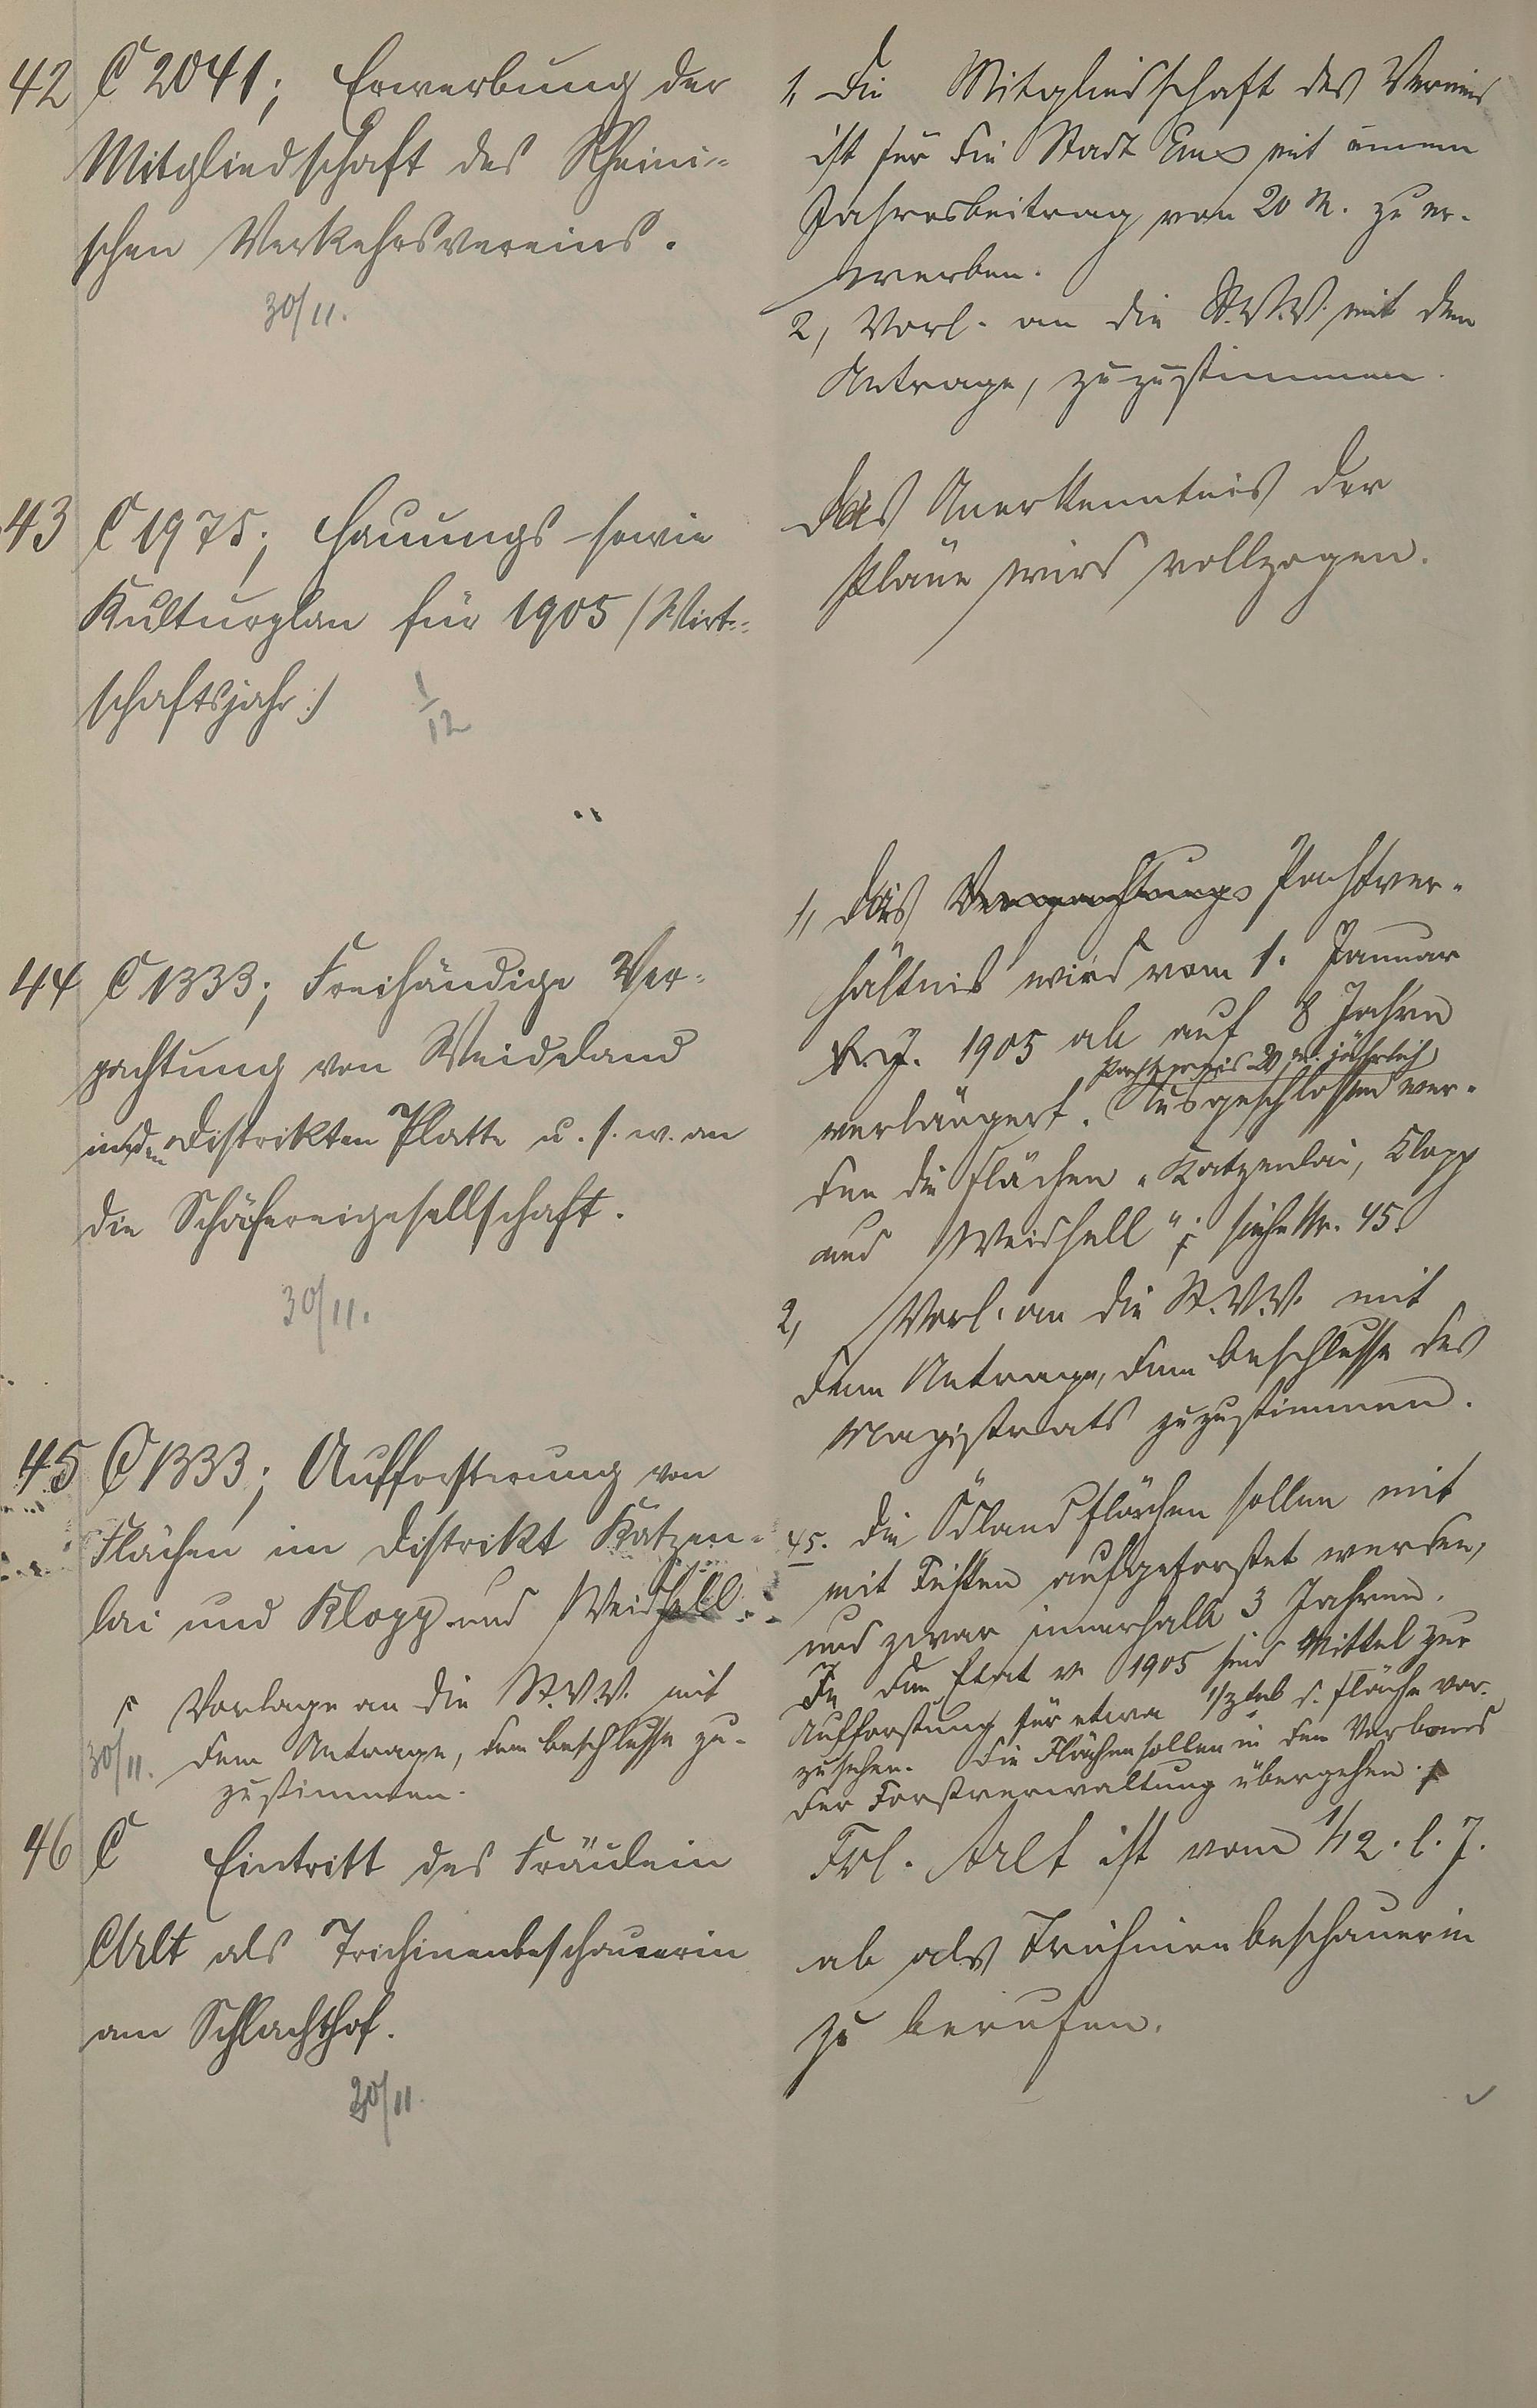 42 C 2041; Erwerbung der
Mitgliedschaft des Rheini-
schen Verkehrsvereins.
30/11.
1, Die Mitgliedschaft des Vereins
ist für die Stadt Ems mit einem
Jahresbeitrag von 20 M. zu er-
werben.
2, Vorl. an die St.V.V. mit dem
Antrage, zuzustimmen.
43 C 1975; Hauungs- sowie
Kulturplan für 1905 (Wirt-
schaftsjahr:)
1/12
Das Anerkenntnis der
Pläne wird vollzogen.
44 C 1333; Freihändige Ver-
pachtung von Weideland
in den Distrikten Platte u. s. w. an
die Schäfereigesellschaft.
30/11.
1, Das Verpachtungs Pachtver-
hältnis wird vom 1. Januar
1905 ab auf 8 Jahre
Pachtpreis 20 M. jährlich
verlängert. Ausgeschlossen wer-
den die Flächen „Katzenlai, Klopp
und Weidhell"; siehe Nr. 45.
2, Vorl. an die St.V.V. mit
dem Antrage, dem Beschlusse des
Magistrats zuzustimmen.
45 C 1333; Aufforstung von
Flächen im Distrikt Katzen-
lai und Klopp und Weidhell.
Vorlage an die St.V.V. mit
30/11. dem Antrage, dem Beschlusse zu-
zustimmen.
45. Die Ödlandflächen sollen mit
mit Fichten aufgeforstet werden,
und zwar innerhalb 3 Jahren.
In den Etat v. 1905 sind Mittel zur
Aufforstung für etwa 1/3 d. Fläche vor-
zusehen. Die Flächen sollen in den Verband
der Forstverwaltung übergehen.
46 C Eintritt des Fräulein
Alt als Trichinenbeschauerin
am Schlachthof.
30/11.
Frl. Alt ist vom 1/12. l. J.
ab als Trichinenbeschauerin
zu berufen.